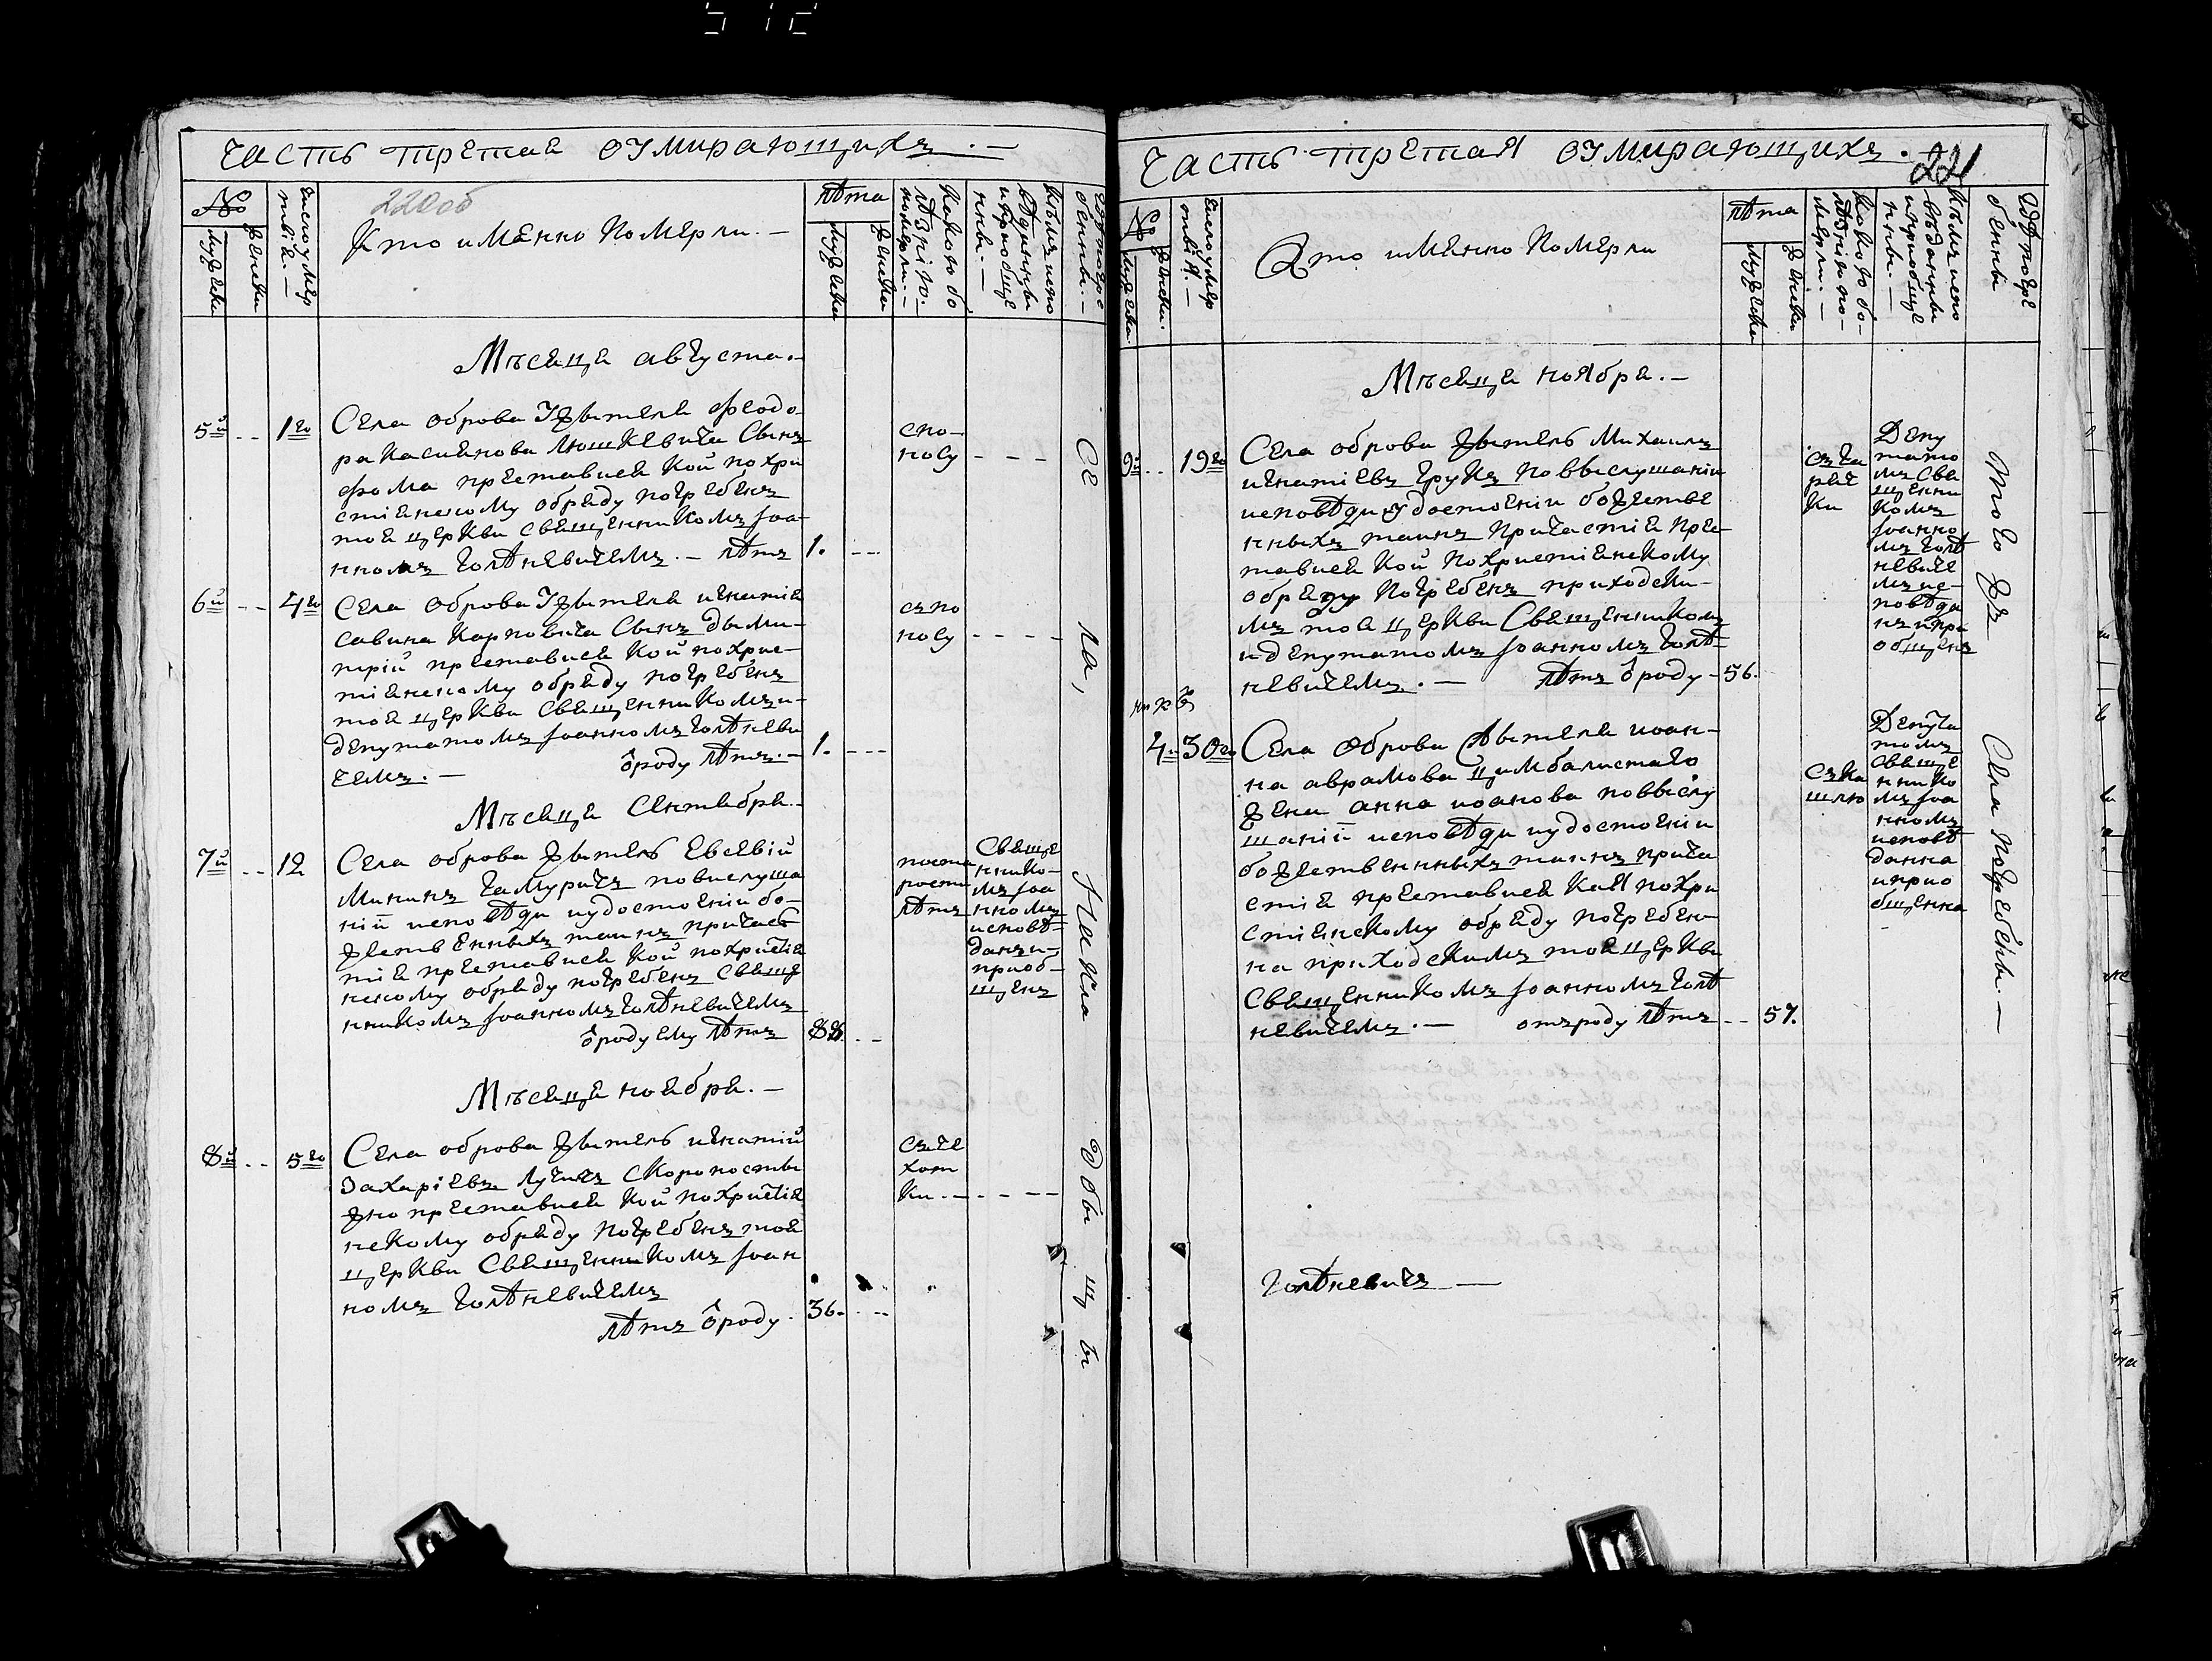 Часть третае оумирающихъ . —
220об
№
мужеска
женска
число умер
твiе. —
Кто именно померли. —
лѣта
мужеска
женска
Какою бо
лѣзнiю.
померли. —
Кѣмъ испо
вѣдннны
и прiобще
нны. —
гдѣ погре
бенны. —
Мѣсеца августа. —
5й
1го
Села оброва Жытеля феодо
ра касиянова Люшкевича Сынъ
фома преставися Кой по хри
стiянскому обряду погребенъ
тоя церкви Священникомъ Iоа
нномъ Голѣневичемъ. — лѣтъ
1.
спо
носу
6й
4го
Села оброва Жытеля игнатiя
савина Карповича Сынъ дыми
трiй преставися Кой по хрис
тiянскому обряду погребенъ
тоя церкви Священникомъ и
депутатомъ Iоанномъ Голѣневи
чемъ. — ѿроду лѣтъ. —
1.
съпо
носу
Мѣсеца Сентября. —
7й
12
Села оброва Жытель Евсевiй
Мининъ Гамуричъ по вислуша
нiй исповѣди и удостоенiи бо
жественныхъ таинъ причас
тiя преставися Кой по христiя
нскому обряду погребенъ Свяще
нникомъ Iоанномъ Голѣневичемъ
ѿроду ему лѣтъ
88.
постa
рости
лѣтъ
Свяще
ннико
мъ Iоа
нномъ
исповѣ
данъ и
приоб
щенъ
Мѣсеца ноября. —
8й
5го
Села оброва Жытель игнатiй
Захарiевъ Лучицъ Скоропости
жно преставися Кой по христiя
нскому обряду погребенъ тоя
церкви Священникомъ Iоан
номъ Голѣневичемъ
лѣтъ ѿроду.
36.
съчe
хот
ки. —
Се ла, на кла д бы щ ы
Часть третая оумирающихъ. —
221
№
мужеска
женска.
число умер
твiя. —
Кто именно Померли
лѣта
мужеска
женска
Какою бо
лѣзнiю по
мерли. —
Кѣмъ испо
вѣданны
и прiобще
нны. —
гдѣ погре
бенны
Мѣсеца ноября. —
9й
19го
Села оброва Жытель Михаилъ
игнатiевъ Грукъ по выслушанiи
исповѣди и удостоенiи божестве
нныхъ таинъ Причастiя прес
тавися Кой по христiянскому
обряду погребенъ приходски
мъ тоя церкви Священникомъ
и депутатомъ Iоанномъ Голѣ
невичемъ. — лѣтъ ѿроду
56.
съга
ряч
ки
Депу
тато
мъ Свя
щенни
комъ
Iоанно
мъ Голѣ
невиче
мъ ис
повѣда
нъ и при
общенъ
4.
30го
Села Оброва Жытеля иоан
на аврамова Цимбалистаго
жена анна иоанова по выслу
шанiй исповѣди и удостоенiи
божественныхъ таинъ прича
стiя преставися Кая по хри
стiянскому обряду погребен
на приходскимъ тоя церкви
Священникомъ Iоанномъ Голѣ
невичемъ. — отъроду лѣтъ
57.
съка
шлю
Депута
томъ
Свяще
ннико
мъ Iоа
нномъ
исповѣ
данна
и прио
бщенна
того жъ Села погребены. —
Голѣневичъ —